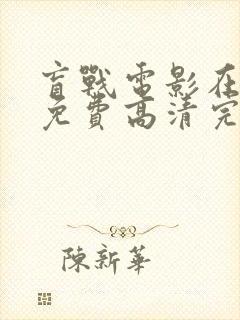 盲戰電影在
免費高清完
陳新華